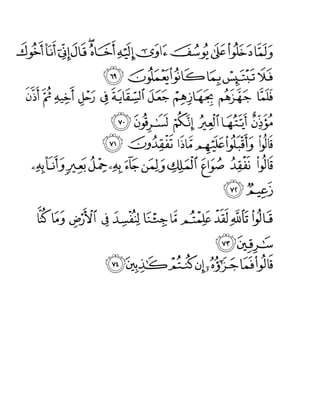 وَلَمَّا دَخَلُواْ عَلَىٰ يُوسُفَ ءَاوَىٰٓ إِلَيْهِ أَخَاهُۖ قَالَ إِنِّيٓ أَنَا۠ أَخُوكَ
فَلَا تَبْتَئِسْ بِمَا كَانُواْ يَعْمَلُونَ ٦٩
فَلَمَّا جَهَّزَهُم بِجَهَازِهِمْ جَعَلَ ٱلسِّقَايَةَ فِي رَحْلِ أَخِيهِ ثُمَّ أَذَّنَ
مُؤَذِّنٌ أَيَّتُهَا ٱلْعِيرُ إِنَّكُمْ لَسَٰرِقُونَ ٧٠
قَالُواْ وَأَقْبَلُواْ عَلَيْهِم مَّاذَا تَفْقِدُونَ ٧١
قَالُواْ نَفْقِدُ صُوَاعَ ٱلْمَلِكِ وَلِمَن جَآءَ بِهِۦ حِمْلُ بَعِيرٍ وَأَنَا۠ بِهِۦ
زَعِيمٌ ٧٢
قَالُواْ تَٱللَّهِ لَقَدْ عَلِمْتُم مَّا جِئْنَا لِنُفْسِدَ فِي ٱلْأَرْضِ وَمَا كُنَّا
سَٰرِقِينَ ٧٣
قَالُواْ فَمَا جَزَٰٓؤُهُۥٓ إِن كُنتُمْ كَٰذِبِينَ ٧٤